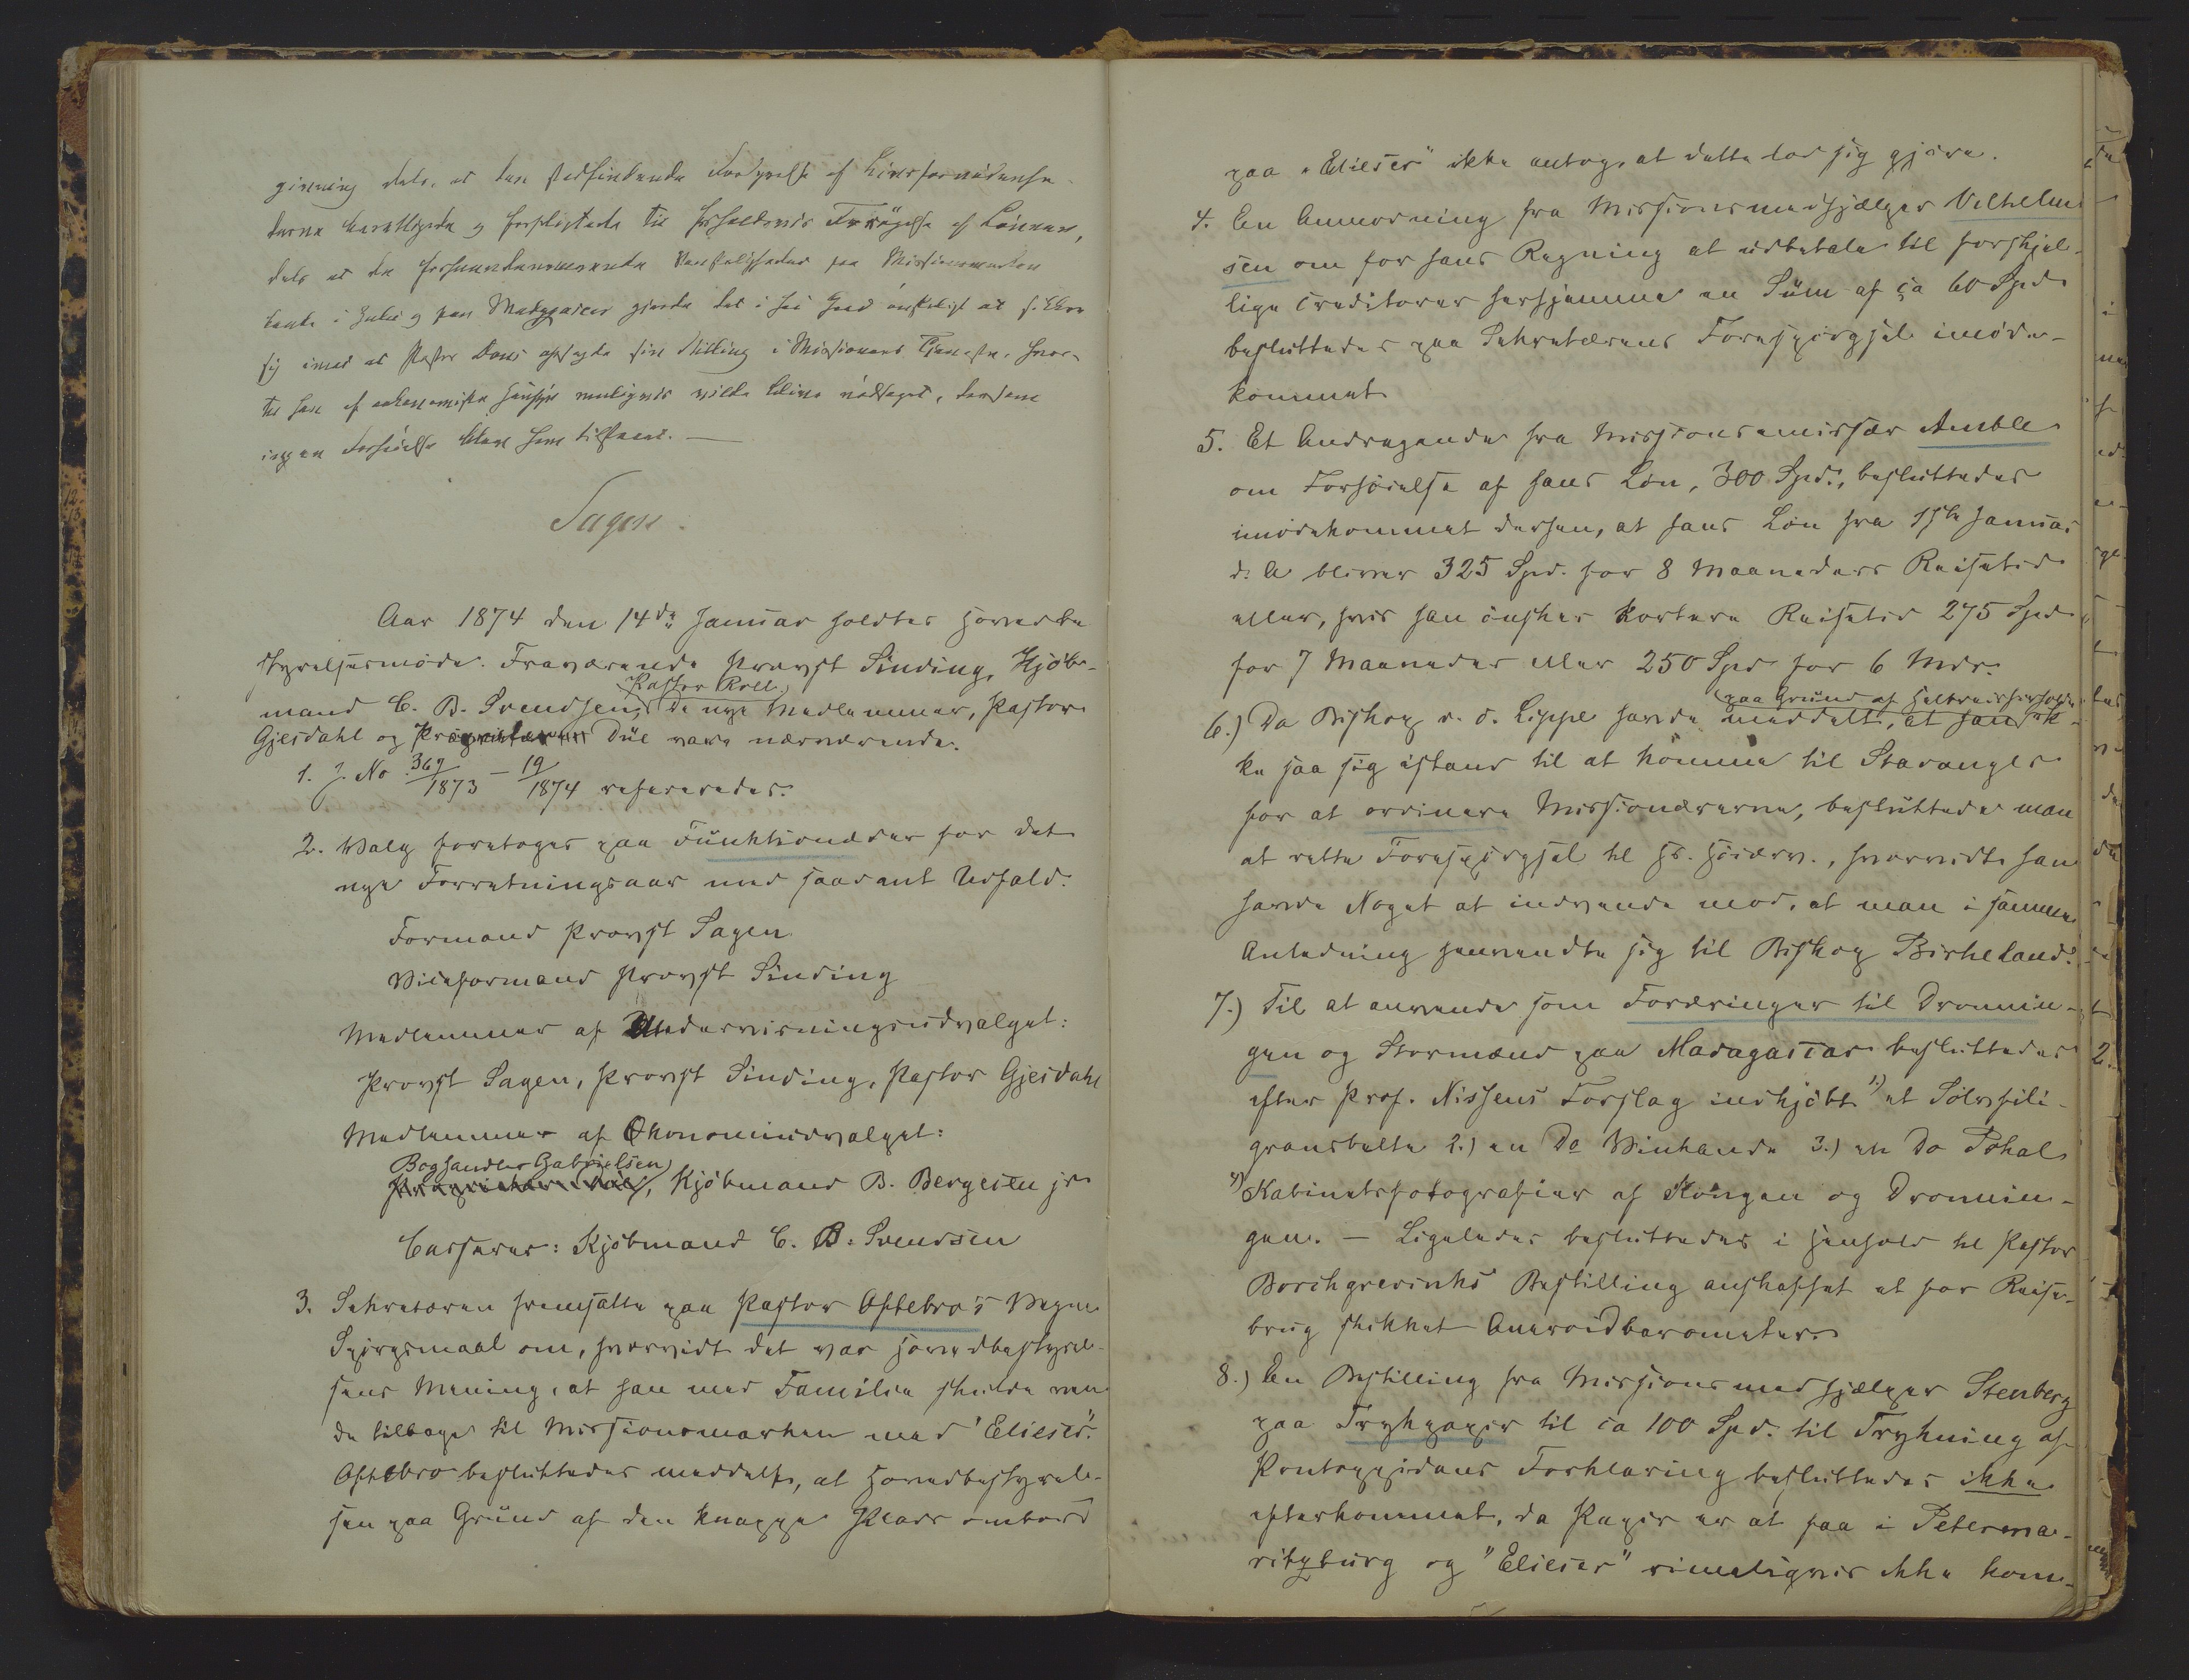 givning dels, at den stedfindende Fordyrelse af Livsfornødenhe-
derne berettigede og forpligtede til forholdsvis Forøgelse af Lønnen,
dels at de forhaandenværende Vanskeligheder paa Missionsmarken
baade i Zulu og paa Madagascar gjorde det i høi Grad ønskeligt at sikkre
sig imod at Pastor Dons opsagde sin Stilling i Missionens Tjeneste, hvor-
til han af oekonomiske Hensyn muligvis vilde blive nødsaget, dersom
ingen Forhøielse blev ham tilstaaet. —
Sagen.
Aar 1874 den 14de Januar holdtes Hovedbe
styrelsesmøde. Fraværende Provst Sinding, Kjøb-
mand C. B. Svendsen, Pastor Roll. De nye Medlemmer, Pastor
Gjesdahl og Due vare nærværende.
1. J. No 369/1873 – 19/1874 refereredes.
2. Valg foretoges paa Funktionærer for det
nye Forretningsaar med saadant Udfald.
Formand Provst Sagen
Viceformand Provst Sinding
Medlemmer af Undervisningsudvalget:
Provst Sagen, Provst Sinding, Pastor Gjesdahl
Medlemmer af Økonomiudvalget:
Boghandler Gabrielsen
Due, Kjøbmand B. Bergesen jr
Casserer: Kjøbmand C. B. Svendsen
3. Sekretæren fremsatte paa Pastor Oftebro's Vegne
Spørgsmaal om, hvorvidt det var Hovedbestyrel-
sens Mening, at han med Familie skulde ven
de tilbage til Missionsmarken med "Elieser".
Oftebro besluttedes meddelt, at Hovedbestyrel-
sen paa Grund af den knappe Plads ombord
paa "Elieser" ikke antog, at dette lod sig gjøre.
4. En Anmodning fra Missionsmedhjælper Vilhelm
sen om for hans Regning at udbetale til forskjel-
lige Creditorer herhjemme en Sum af ca 60 Spd
besluttedes paa Sekretærens Forespørgsel imøde-
kommet
5. Et Andragende fra Missionsemissær Amble
om Forhøielse af hans Løn, 300 Spd., besluttedes
imødekommet derhen, at hans Løn fra 1ste Januar
d. A bliver 325 Spd. for 8 Maaneders Reisetid
eller, hvis han ønsker kortere Reisetid 275 Spd
for 7 Maaneder eller 250 Spd for 6 Mdr.
paa Grund af Helbredsforholde
6.) Da Biskop v. d. Lippe havde meddelt, at han ik-
ke saa sig istand til at komme til Stavanger
for at ordinere Missionærerne, besluttede man
at rette Forespørgsel til Hs. Høiærv., hvorvidt han
havde Noget at indvende mod, at man i samme
Anledning henvendte sig til Biskop Birkeland.
7.) Til at anvende som Foræringer til Dronnin-
gen og Stormænd paa Madagascar besluttedes
efter Prof. Nissens Forslag indkjøbt 1) et Sølvfili-
gransbelte 2.) en Do Vinkande 3.) en Do Pokal
4) Kabinetsfotografier af Kongen og Dronnin-
gen. — Ligeledes besluttedes i Henhold til Pastor
Borchgrevinks Bestilling anskaffet et for Reise-
brug skikket Aneroidbarometer
8.) En Bestilling fra Missionsmedhjælper Stenberg
paa Trykpapir til ca 100 Spd. til Trykning af
Pontoppidans Forklaring besluttedes ikke
efterkommet, da Papir er at faa i Peterma-
ritzburg og "Elieser" rimeligvis ikke kom-